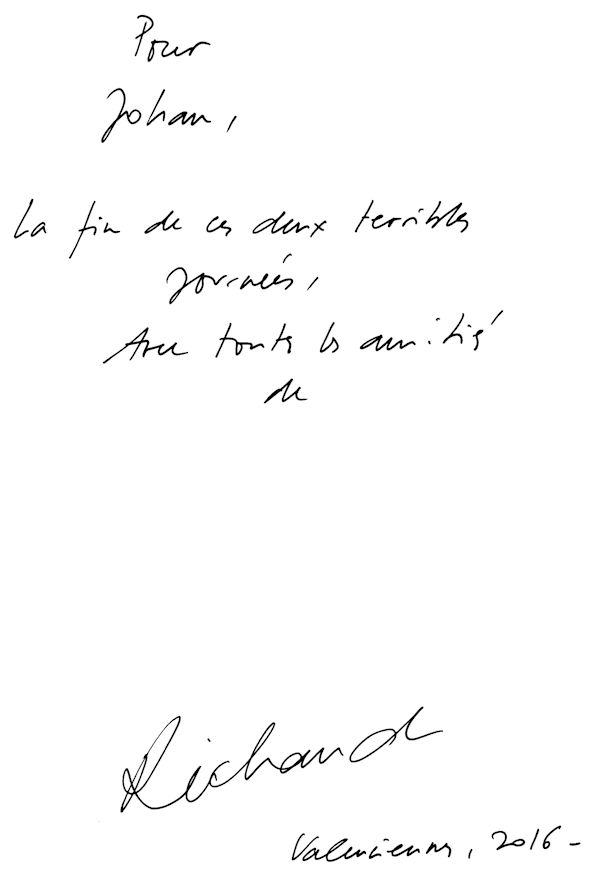 Pour
Johan,
La fin de ces deux terribles
journées,
Avec toutes les amitiés
de
Richard
Valenciennes, 2016-